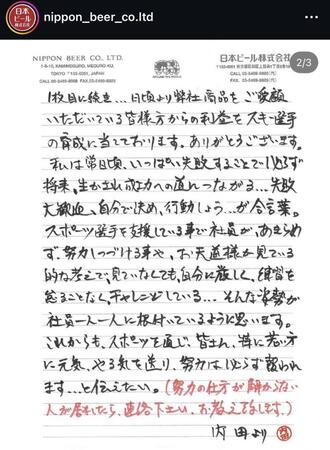 nippon_beer_co.ltd
日本ビール
株式会社
2/3
NIPPON BEER CO. LTD.
TOKYO 〒153-0051, JAPAN
日本ビール株式会社
1枚目に続き…日頃より弊社商品をご愛顧
いただいている皆様方からの利益をスキー選手
の育成に当てております。ありがとうございます。
私は常日頃、いっぱい失敗することで必らず
将来、生かされ成功への道へつながる…失敗
大歓迎、自分で決め、行動しよう…が合言葉。
スポーツ選手を支援している事で社員が、あきらめ
ず、努力しつづける事や、お天道様が見ている
的な考えで、見ていなくても、自分に厳しく、練習を
怠ることなく、チャレンジしている…そんな姿勢が
社員一人一人に根付いているように思います。
これからも、スポーツを通じ、皆さん、特に若い方
に元気、やる気を送り、努力は必らず報われ
ます…と伝えたい。(努力の仕方が解からない
人が居たら、連絡下さい。お教えします。)
内田より